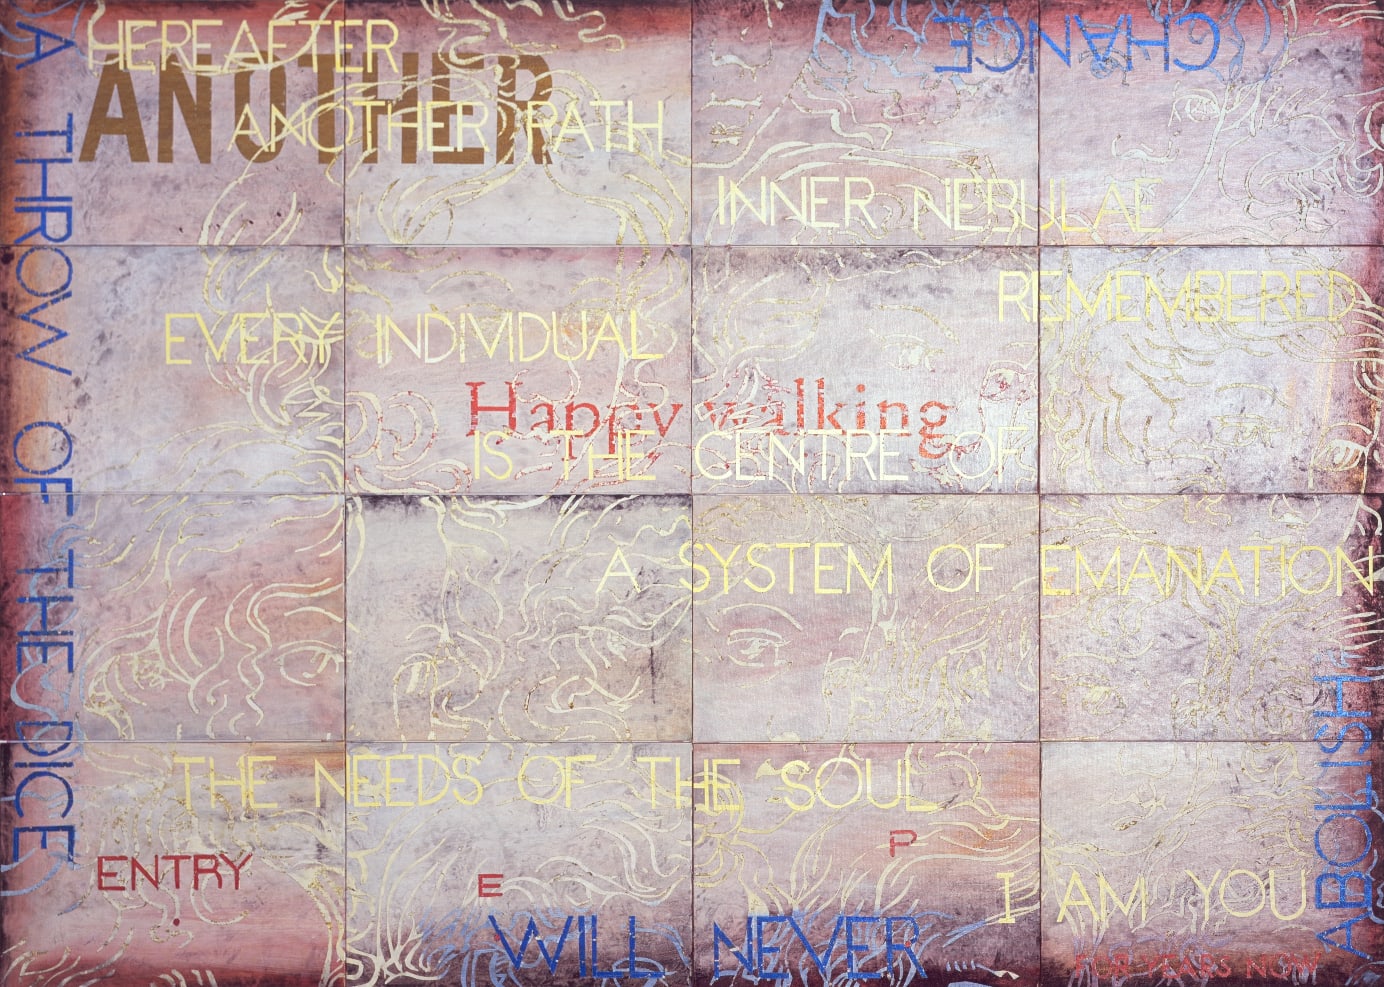 HEREAFTER
ANOTHER
ANOTHER PATH
INNER NEBULAE
EVERY INDIVIDUAL
REMEMBERED
Happy walking
IS THE CENTRE OF
A SYSTEM OF EMANATION
THE NEEDS OF THE SOUL
ENTRY
E
P
I AM YOU
A THROW OF THE DICE
WILL NEVER
ABOLISH
CHANCE
YEARS NOW